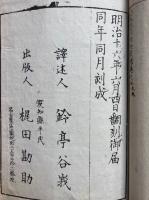 明治十六年六月四日飜刻御届
同年同月刻成
譯述人
愛知縣平民
鈴亭谷峩
出版人
梶田勘助